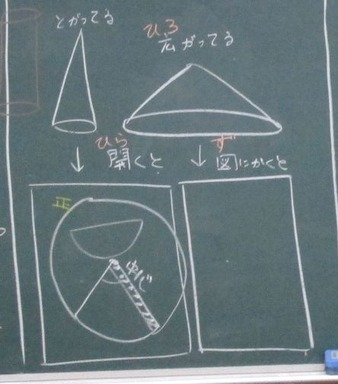 とがってる
ひろ
広がってる
ひら
開くと
ず
図にかくと
正